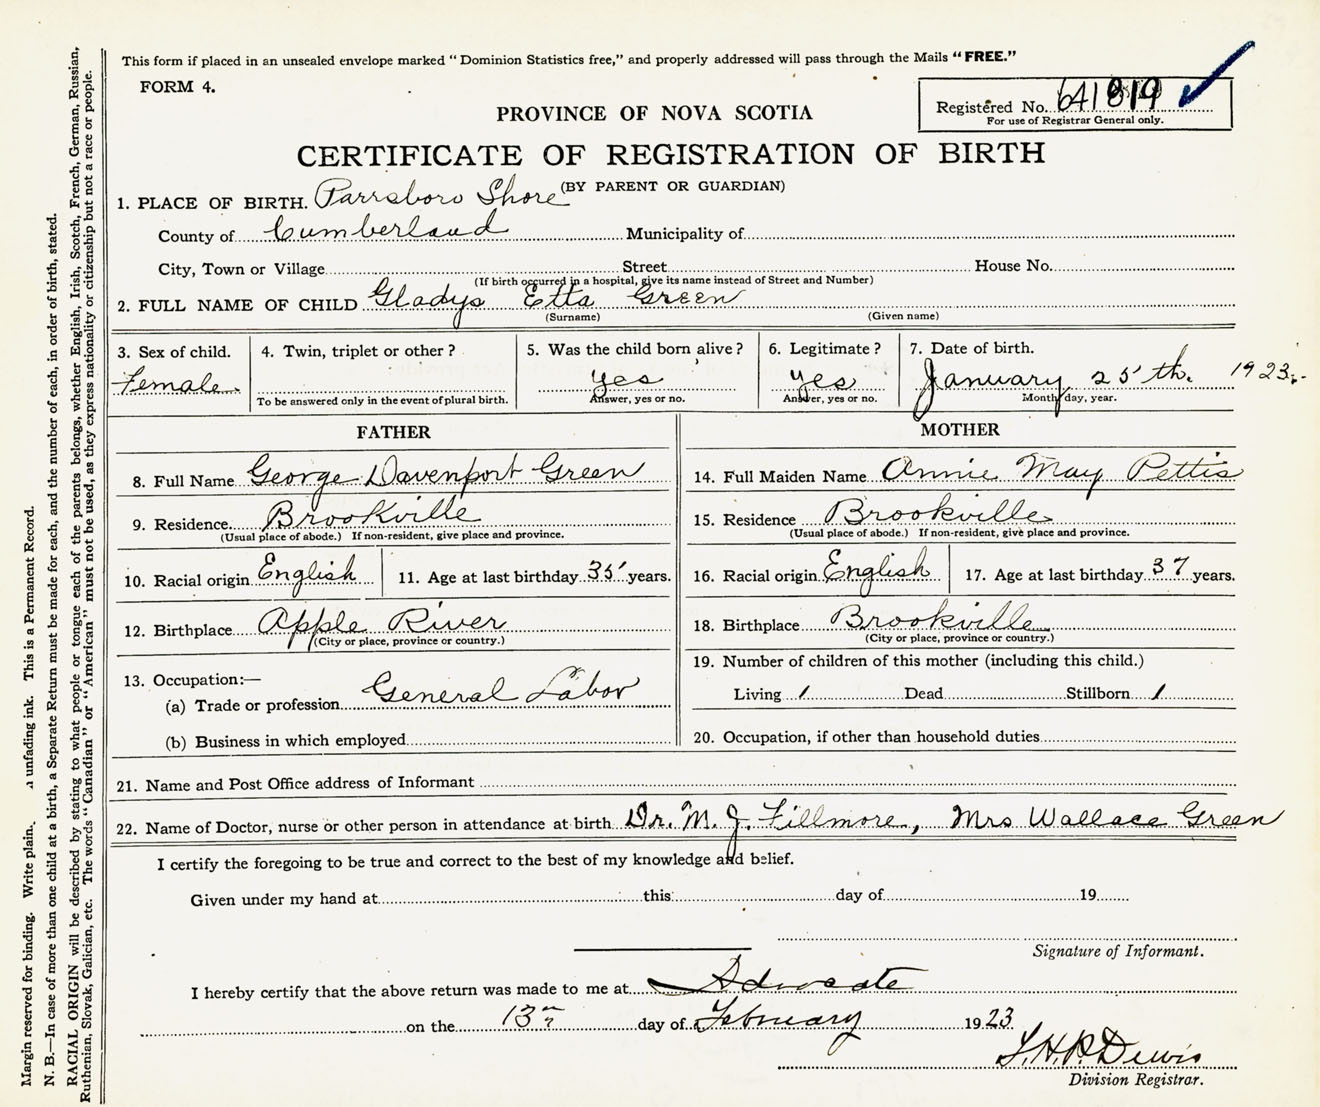 This form if placed in an unsealed envelope marked "Dominion Statistics free," and properly addressed will pass through the Mails "FREE."
FORM 4.
Registered No. 641819
For use of Registrar General only.
PROVINCE OF NOVA SCOTIA
CERTIFICATE OF REGISTRATION OF BIRTH
(BY PARENT OR GUARDIAN)
1. PLACE OF BIRTH. Parrsboro Shore
County of Cumberland Municipality of
City, Town or Village Street House No.
(If birth occurred in a hospital, give its name instead of Street and Number)
2. FULL NAME OF CHILD Gladys Etta Green
(Surname) (Given name)
3. Sex of child. 4. Twin, triplet or other? 5. Was the child born alive? 6. Legitimate? 7. Date of birth.
Female yes yes January 25th. 1923.
To be answered only in the event of plural birth. Answer, yes or no. Answer, yes or no. Month, day, year.
FATHER MOTHER
8. Full Name George Davenport Green 14. Full Maiden Name Annie May Pettis
9. Residence. Brookville 15. Residence Brookville
(Usual place of abode.) If non-resident, give place and province. (Usual place of abode.) If non-resident, give place and province.
10. Racial origin English 11. Age at last birthday 35 years. 16. Racial origin English 17. Age at last birthday 37 years.
12. Birthplace Apple River 18. Birthplace Brookville
(City or place, province or country.) (City or place, province or country.)
13. Occupation:— 19. Number of children of this mother (including this child.)
(a) Trade or profession General Labor Living 1 Dead Stillborn 1
(b) Business in which employed 20. Occupation, if other than household duties
21. Name and Post Office address of Informant
22. Name of Doctor, nurse or other person in attendance at birth Dr. M. J. Fillmore, Mrs Wallace Green
I certify the foregoing to be true and correct to the best of my knowledge and belief.
Given under my hand at this day of 19
Signature of Informant.
I hereby certify that the above return was made to me at Advocate
on the 13 day of February 1923.
Dewis
Division Registrar.
Margin reserved for binding. Write plain. unfading ink. This is a Permanent Record.
N. B.—In case of more than one child at a birth, a Separate Return must be made for each, and the number of each, in order of birth, stated.
RACIAL ORIGIN will be described by stating to what people or tongue each of the parents belongs, whether English, Irish, Scotch, French, German, Russian,
Ruthenian, Slovak, Galician, etc. The words "Canadian" or "American" must not be used, as they express nationality or citizenship but not a race or people.